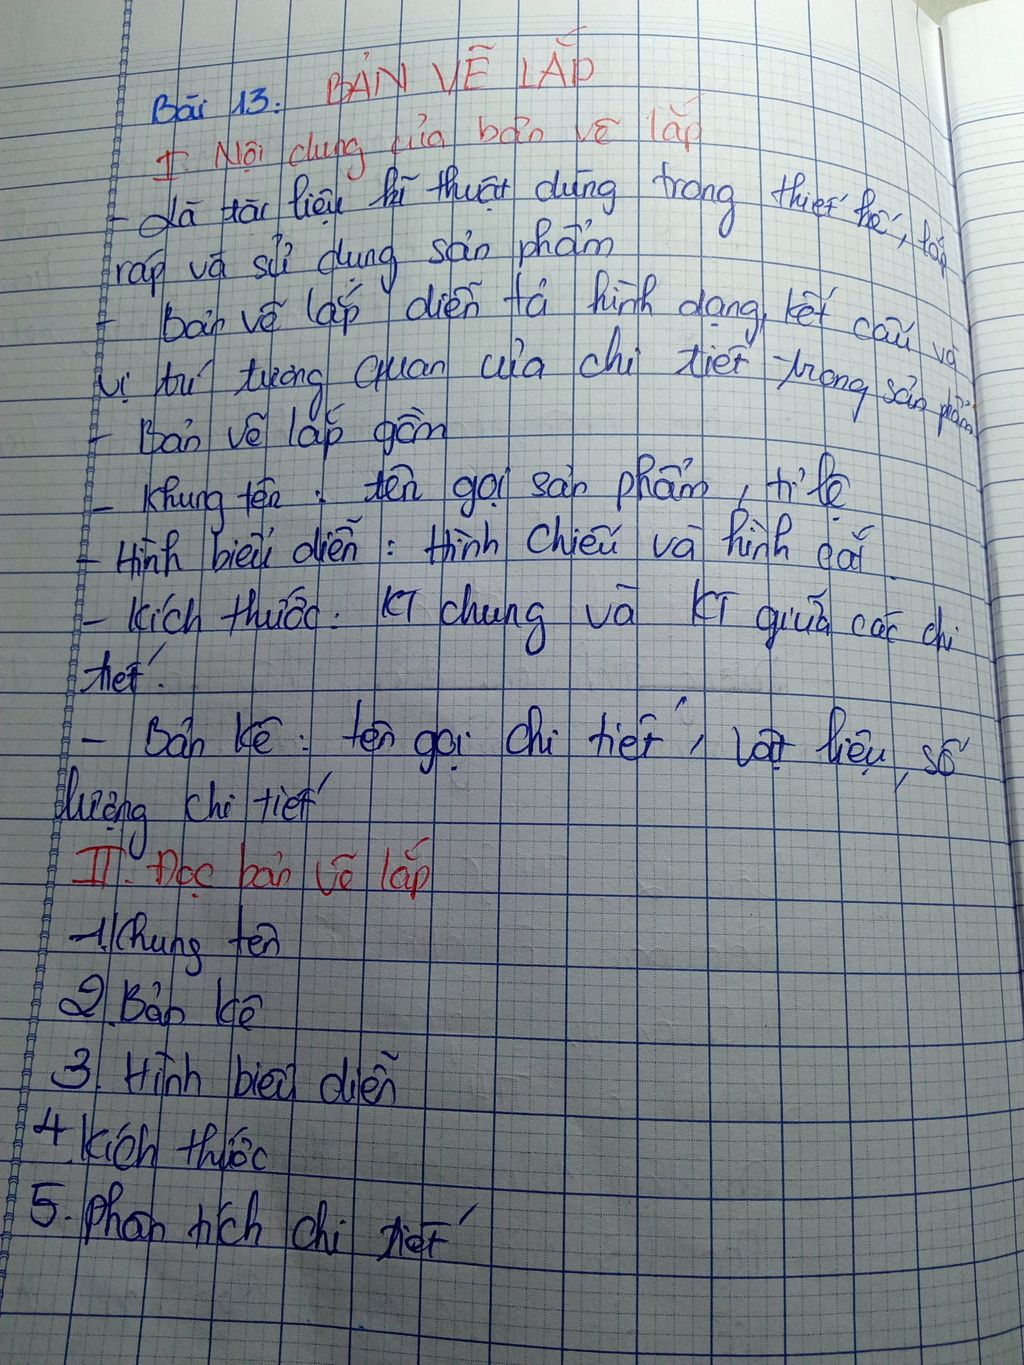 Bài 13: BẢN VẼ LẮP
I. Nội dung của bản vẽ lắp
- Là tài liệu kĩ thuật dùng trong thiết kế, lắp
ráp và sử dụng sản phẩm
- Bản vẽ lắp diễn tả hình dạng, kết cấu và
vị trí tương quan của chi tiết trong sản phẩm
- Bản vẽ lắp gồm
- Khung tên : tên gọi sản phẩm, tỉ lệ
- Hình biểu diễn : Hình chiếu và hình cắt
- Kích thước : KT chung và KT giữa các chi
tiết.
- Bản kê : tên gọi chi tiết, vật liệu, số
lượng chi tiết
II. Đọc bản vẽ lắp
1. Khung tên
2. Bản kê
3. Hình biểu diễn
4. Kích thước
5. Phân tích chi tiết